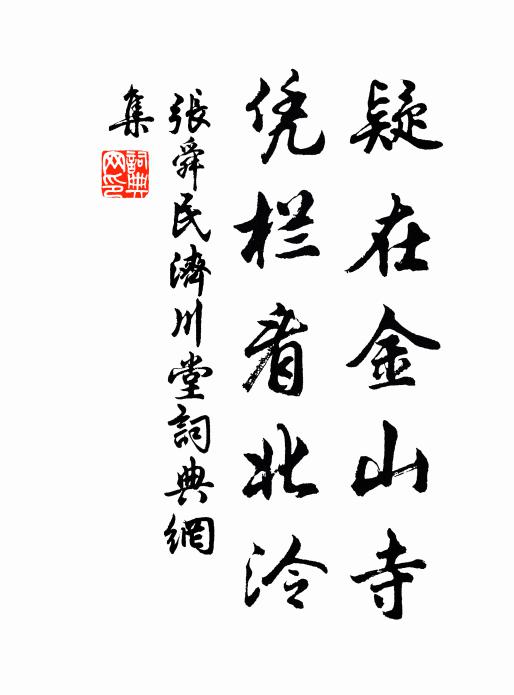 疑在金山寺
凭栏看北泠
張舜民濟川堂詞典網
集
詞典
网印